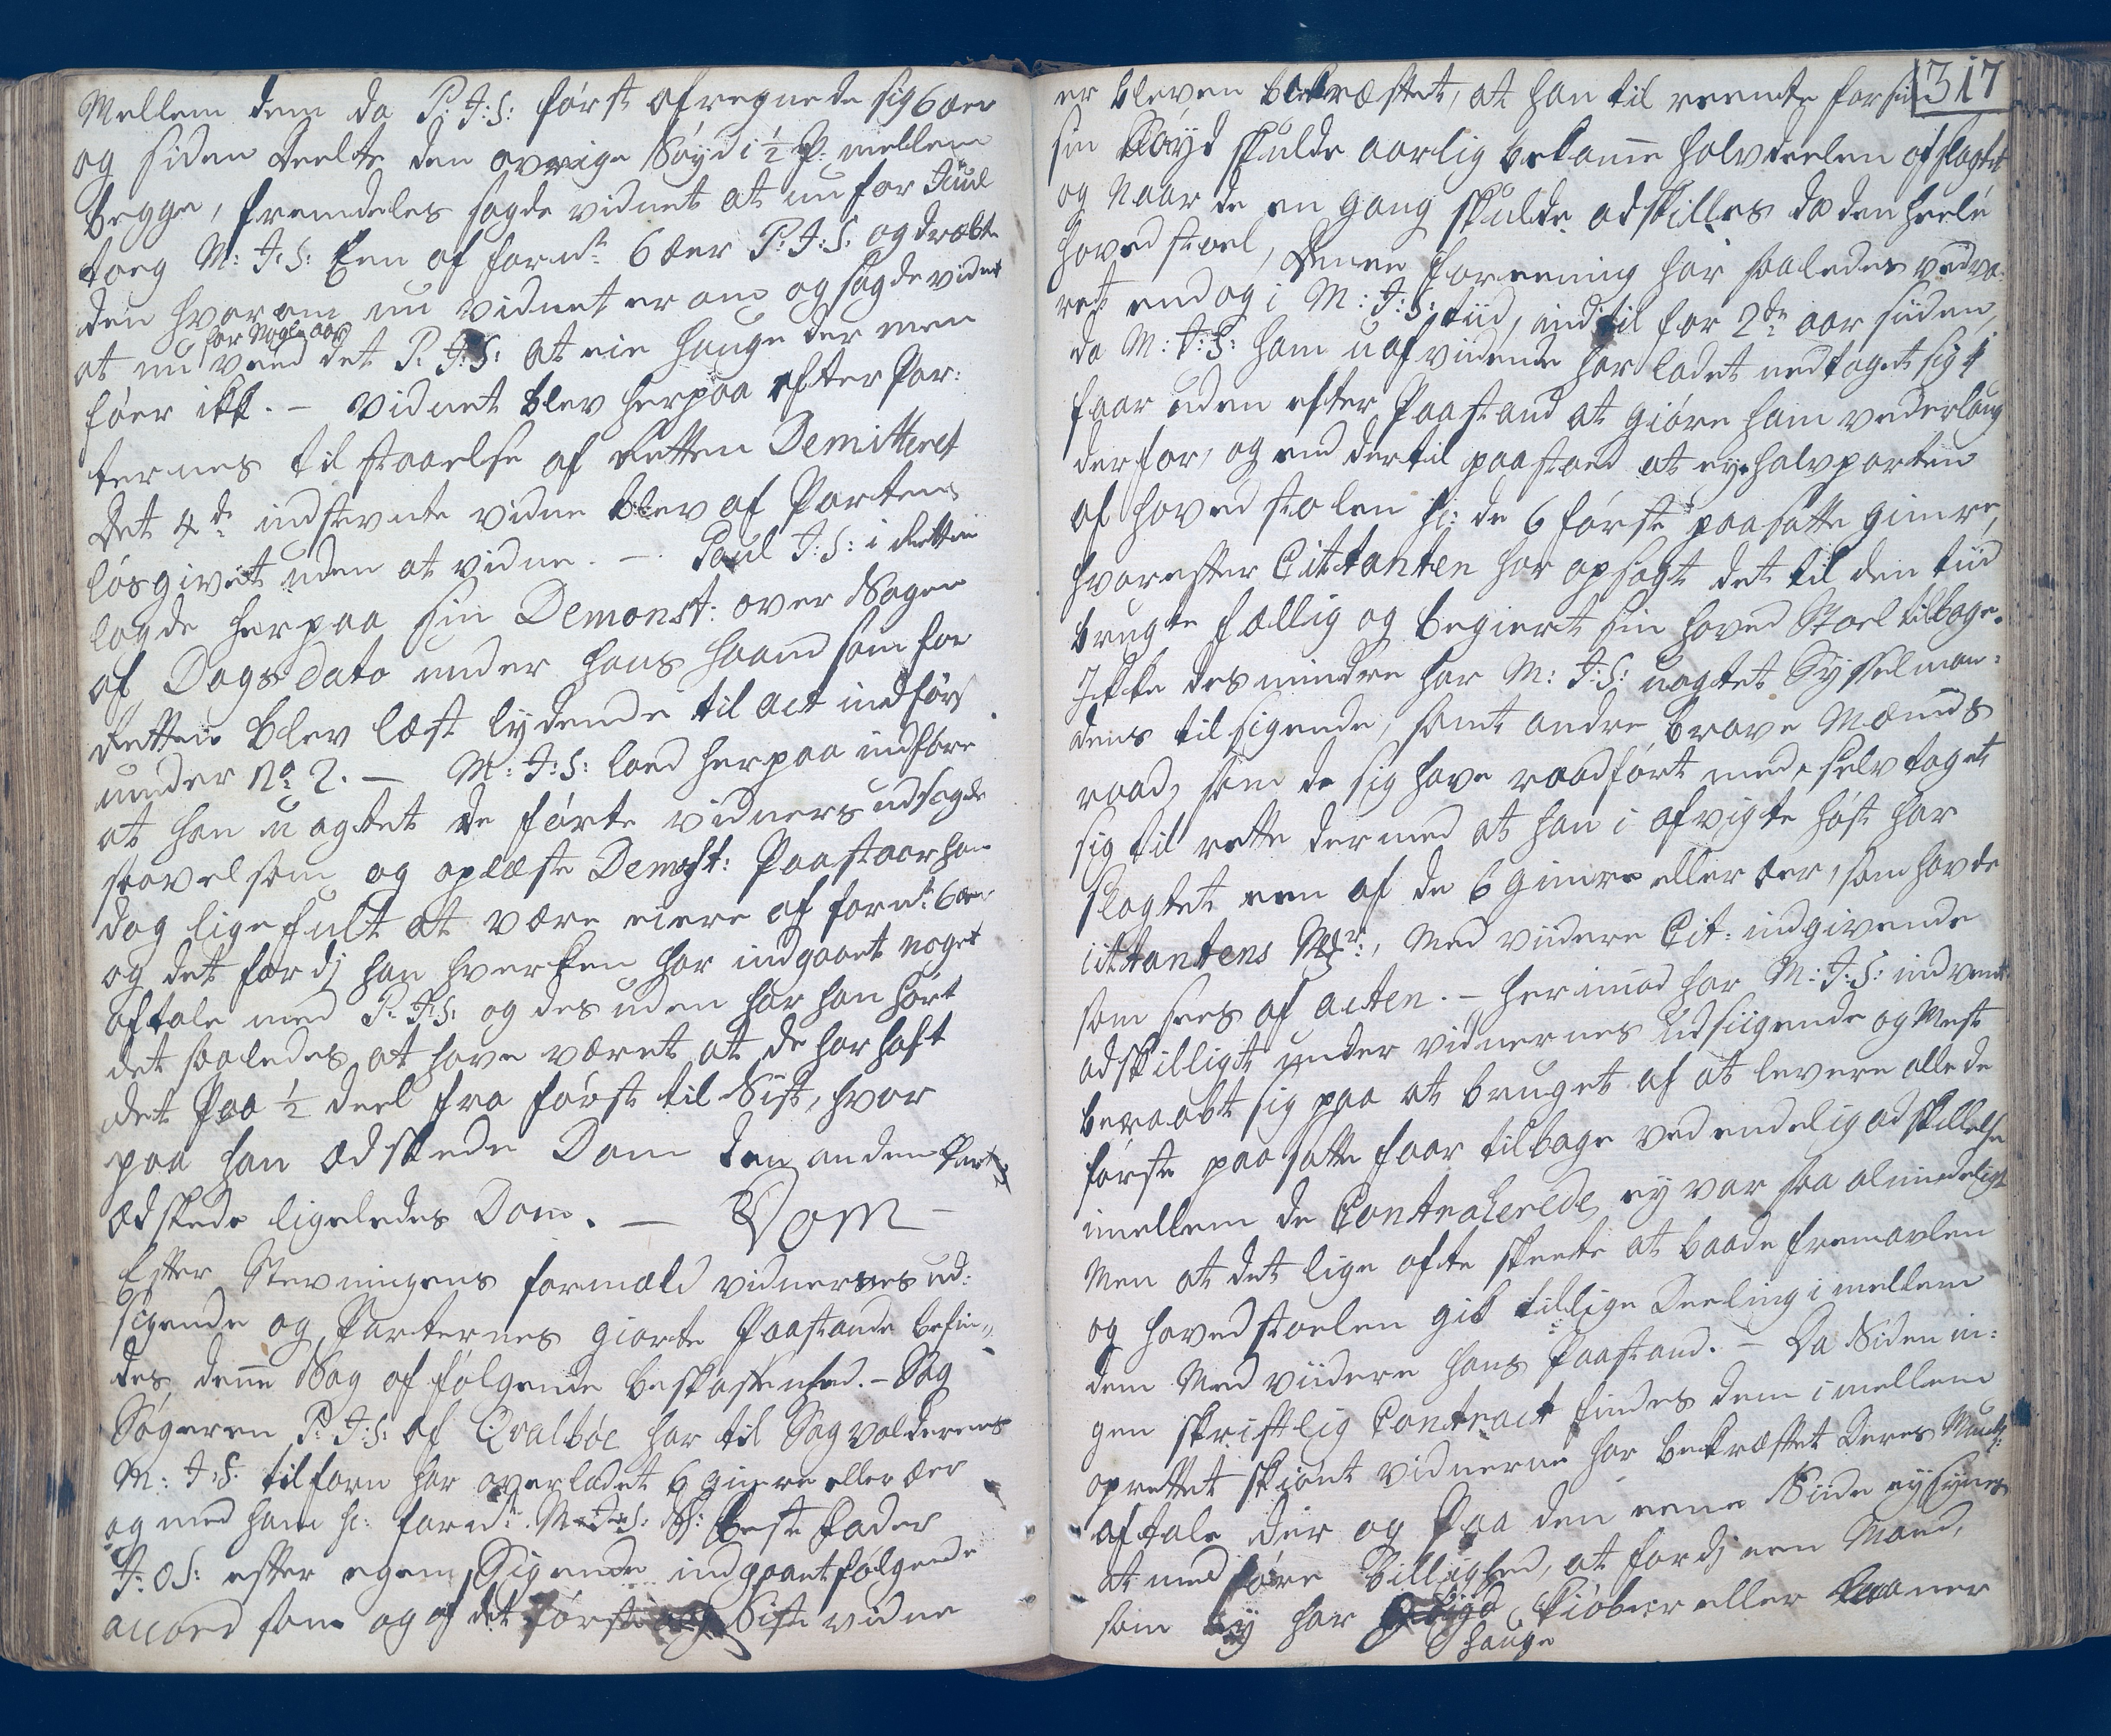 Mellem dem da P: J: S: først afregnede sig 6 ær
og siden deelte den øvrige Søyd i ½ P. mellem
begge, fremdeles sagde vidnet at nu for Juul
toeg M: J: S: Een af forn: 6 ær P: J: S: og dræbte
den hvorom nu vidnet er om og sagde vidnet
for Nogle aar
at nu veed det P: J: S: at eie hauge der men
føer ikke. – vidnet blev herpaa efter Par:
ternes tilstaaelse af Retten Demitteret
Det 4de indstevnte vidne blev af Parten
løsgivet uden at vidne. – Paul J: S: i Retten
lagde herpaa sin Demonst: over Sagen
af Dags Dato under hans haand som for
Retten blev læst lydende til act indført
under No 2. – M: J: S: loed herpaa indføre
at han uagtet de førte vidners udsagde
saavelsom og oplæste Demost: Paastaar han
dog ligefult at være eiere af forn: 6 ær
og det fordj han hverken har indgaaet noget
aftale med P: J: S: og desuden har han hørt
det saaledes at have været at de har haft
det Paa ½ deel fra først til Sist, hvor
paa han ædskede Dom den anden Part
ædskede ligeledes Dom. – Dom –
Efter Stevningens formæld vidnernes ud:
sigende og Parternes giorte Paastande befin„
des denne Sag af følgende beskaffenhed. – Sag
Søgeren P: J: S: af Qvalbøe har til Sagvolderens
M: J: S: tilforn har overladet 6 gimre eller ær
og med ham sc: fornd: M: J: S: beste fader
J: O S: efter egen Sigende indgaaet følgende
accord som og af det første og Siste vidne
317
er bleven bekræftet, at han til reente for sin
sin Søyd skulde aarlig bekomme halvdeelen af slagtet
og naar de en gang skulde adskilles da den heele
hovedstoel, Denne foreening har saaledes vedva:
ret endog i M: J: S: tiid, indtil for 2de aar siiden,
da M: J: S: ham uafvidende har ladet nedtaget sig
faar uden efter Paastand at giøre ham vederlaug
derfor, og end dertil paastaaed at eye halvparten
af hovedstolen sc: de 6 første paasatte gimre,
hvorefter Cittanten har opsagt det til den tiid
brugte fællig og begiert sin hoved Stoel tilbage.
Icke desmindre har M: J: S: uagtet Sysselman:
dens tilsigende, samt andre brave Mænds
raad, som de sig have raadført med, selv taget
sig til rette dermed at han i afvigte høst har
slagtet een af de 6 gimre eller ær, som havde
cittantens Mr:, Med viidere Cit: indgivende
som sees af acten. – herimod har M: J: S: indvendt
adskilligt under vidnernes Udsiigende og Mest
beraabt sig paa at bruget af at levere alle de
første paasatte faar tilbage ved endelig adskillelse
imellem de Contraherede ey var saa almindeligt
Men at det lige ofte skeete at baade fremavlen
og hovedstoelen gik tillige Deeling imellem
dem Med viidere hans Paastand. – Da Siden in:
gen skriftlig Contract findes dem imellem
oprettet skiønt vidnerne har bekræftet Deres Mundtl:
aftale der og Paa den eene Siide ey synes
at medføre billighed, at fordj een Mand,
som ey har kiøber eller laaner
hauge